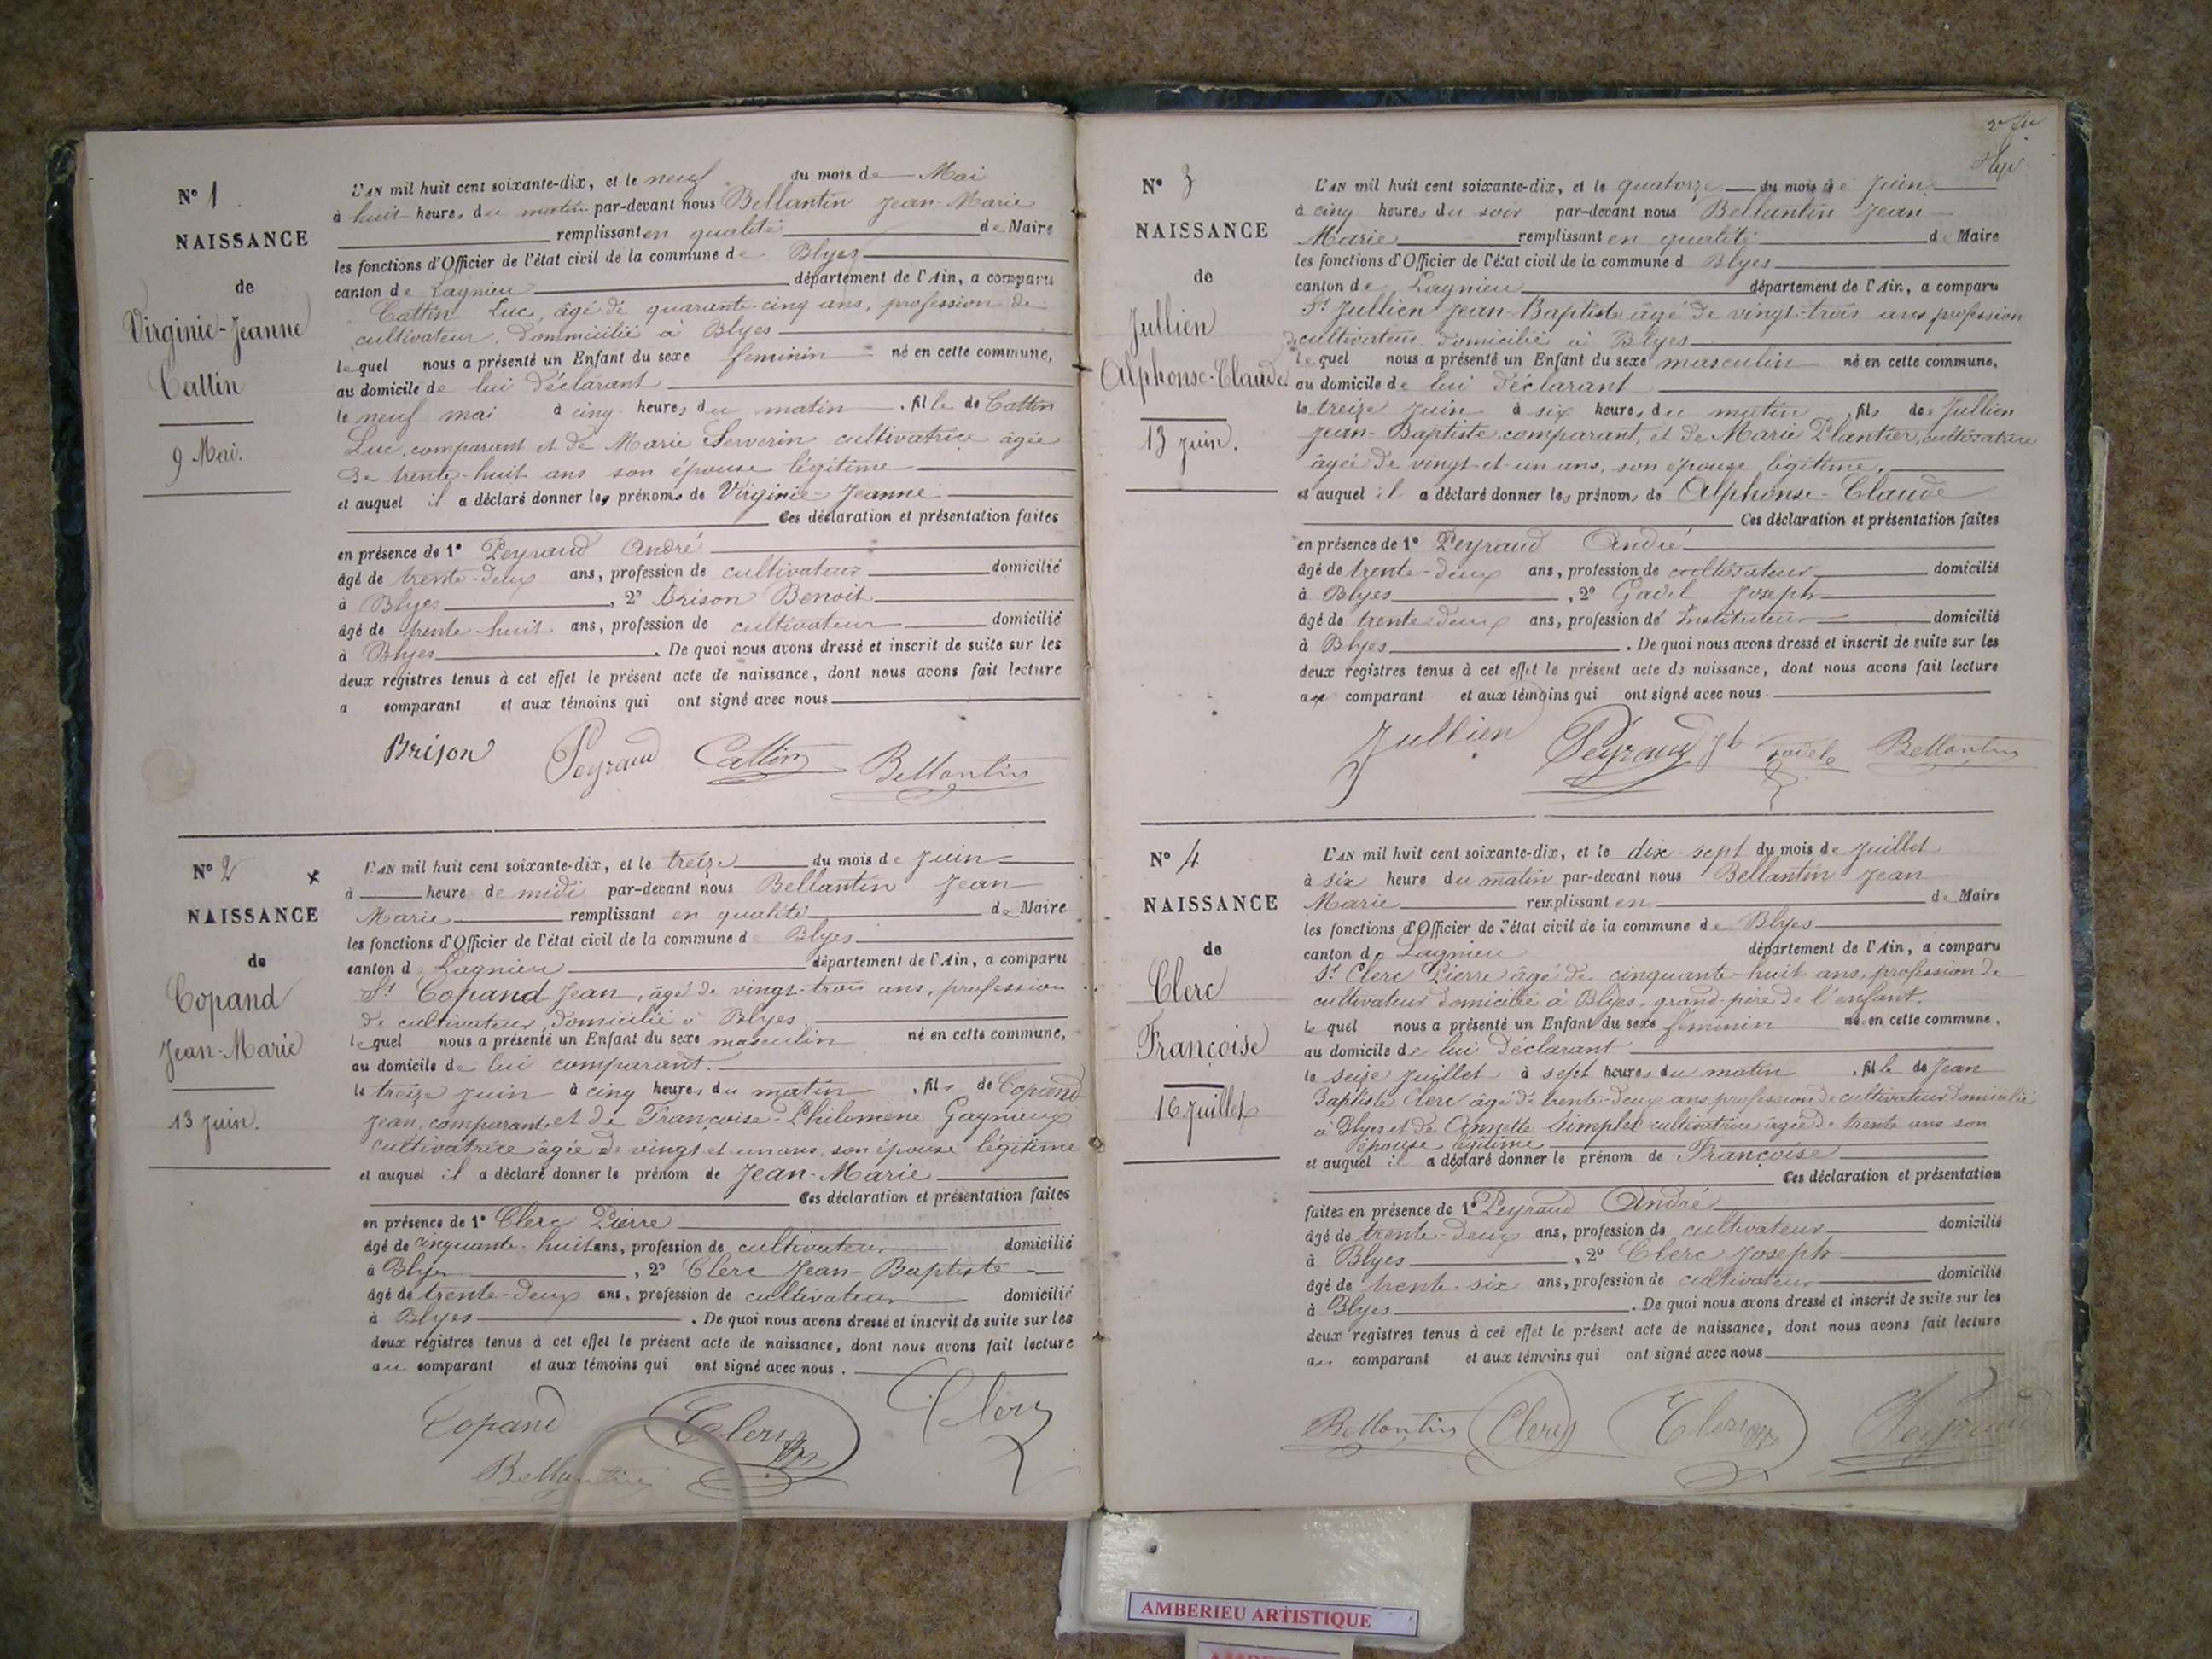 N° 1
NAISSANCE
de
Virginie-Jeanne
Cattin
9 Mai.
L'AN mil huit cent soixante-dix, et le neuf du mois de Mai
à huit heures du matin par-devant nous Bellantin Jean-Marie
remplissant en qualité de Maire
les fonctions d'Officier de l'état civil de la commune de Blyes
canton de Lagnieu département de l'Ain, a comparu
Cattin Luc, âgé de quarante-cinq ans, profession de
cultivateur, dommicilié à Blyes
lequel nous a présenté un Enfant du sexe féminin né en cette commune,
au domicile de lui déclarant
le neuf mai à cinq heures du matin, fille de Cattin
Luc, comparant et de Marie Serverin cultivatrice âgée
de trente-huit ans son épouse légitime
et auquel il a déclaré donner les prénoms de Virginie-Jeanne
Ces déclaration et présentation faites
en présence de 1° Peyraud André
âgé de trente-deux ans, profession de cultivateur domicilié
à Blyes, 2° Brison Benoit
âgé de trente-huit ans, profession de cultivateur domicilié
à Blyes. De quoi nous avons dressé et inscrit de suite sur les
deux registres tenus à cet effet le présent acte de naissance, dont nous avons fait lecture
a comparant et aux témoins qui ont signé avec nous
Brison Peyraud Cattin Bellantin
N° 2 x
NAISSANCE
de
Copand
Jean-Marie
13 Juin.
L'AN mil huit cent soixante-dix, et le treize du mois de Juin
à heure de midi par-devant nous Bellantin Jean
Marie remplissant en qualité de Maire
les fonctions d'Officier de l'état civil de la commune de Blyes
canton de Lagnieu département de l'Ain, a comparu
St Copand Jean, âgé de vingt-trois ans, profession
de cultivateur, domicilié à Blyes
lequel nous a présenté un Enfant du sexe masculin né en cette commune,
au domicile de lui comparant.
le treize Juin à cinq heures du matin, fils de Copand
Jean, comparant et de Françoise-Philomène Gagnieux
cultivatrice âgée de vingt-et-un ans, son épouse légitime
et auquel il a déclaré donner le prénom de Jean-Marie
Ces déclaration et présentation faites
en présence de 1° Clerc Pierre
âgé de cinquante-huit ans, profession de cultivateur domicilié
à Blyes, 2° Clerc Jean-Baptiste
âgé de trente-deux ans, profession de cultivateur domicilié
à Blyes. De quoi nous avons dressé et inscrit de suite sur les
deux registres tenus à cet effet le présent acte de naissance, dont nous avons fait lecture
au comparant et aux témoins qui ont signé avec nous.
Copand Clerc Clerc
Bellantin
N° 3
NAISSANCE
de
Jullien
Alphonse-Claude
13 Juin.
L'AN mil huit cent soixante-dix, et le quatorze du mois de Juin
à cinq heures du soir par-devant nous Bellantin Jean
Marie remplissant en qualité de Maire
les fonctions d'Officier de l'état civil de la commune d Blyes
canton de Lagnieu département de l'Ain, a comparu
St Jullien Jean-Baptiste âgé de vingt-trois ans profession
de cultivateur domicilié à Blyes
lequel nous a présenté un Enfant du sexe masculin né en cette commune,
au domicile de lui déclarant
le treize Juin à six heures du matin, fils de Jullien
Jean-Baptiste comparant, et de Marie Plantier, cultivatrice
âgée de vingt-et-un ans, son épouse légitime,
et auquel il a déclaré donner les prénoms de Alphonse-Claude
Ces déclaration et présentation faites
en présence de 1° Peyraud André
âgé de trente-deux ans, profession de cultivateur domicilié
à Blyes, 2° Gadel Joseph
âgé de trente-deux ans, profession de Instituteur domicilié
à Blyes. De quoi nous avons dressé et inscrit de suite sur les
deux registres tenus à cet effet le présent acte de naissance, dont nous avons fait lecture
au comparant et aux témoins qui ont signé avec nous.
Jullien Peyraud Gadel Bellantin
N° 4
NAISSANCE
de
Clerc
Françoise
16 Juillet
L'AN mil huit cent soixante-dix, et le dix-sept du mois de Juillet
à six heure du matin par-devant nous Bellantin Jean
Marie remplissant en de Maire
les fonctions d'Officier de l'état civil de la commune de Blyes
canton de Lagnieu département de l'Ain, a comparu
St Clerc Pierre âgé de cinquante-huit ans, profession de
cultivateur domicilié à Blyes, grand-père de l'enfant.
lequel nous a présenté un Enfant du sexe féminin né en cette commune,
au domicile de lui déclarant
le seize Juillet à sept heures du matin, fille de Jean
Baptiste Clerc âgé de trente-deux ans profession de cultivateur domicilié
à Blyes et de Annette Simplet cultivatrice âgée de trente ans son
épouse légitime
et auquel il a déclaré donner le prénom de Françoise
Ces déclaration et présentation
faites en présence de 1° Peyraud André
âgé de trente-deux ans, profession de cultivateur domicilié
à Blyes, 2° Clerc Joseph
âgé de trente-six ans, profession de cultivateur domicilié
à Blyes. De quoi nous avons dressé et inscrit de suite sur les
deux registres tenus à cet effet le présent acte de naissance, dont nous avons fait lecture
au comparant et aux témoins qui ont signé avec nous
Bellantin Clerc Clerc Peyraud
AMBERIEU ARTISTIQUE